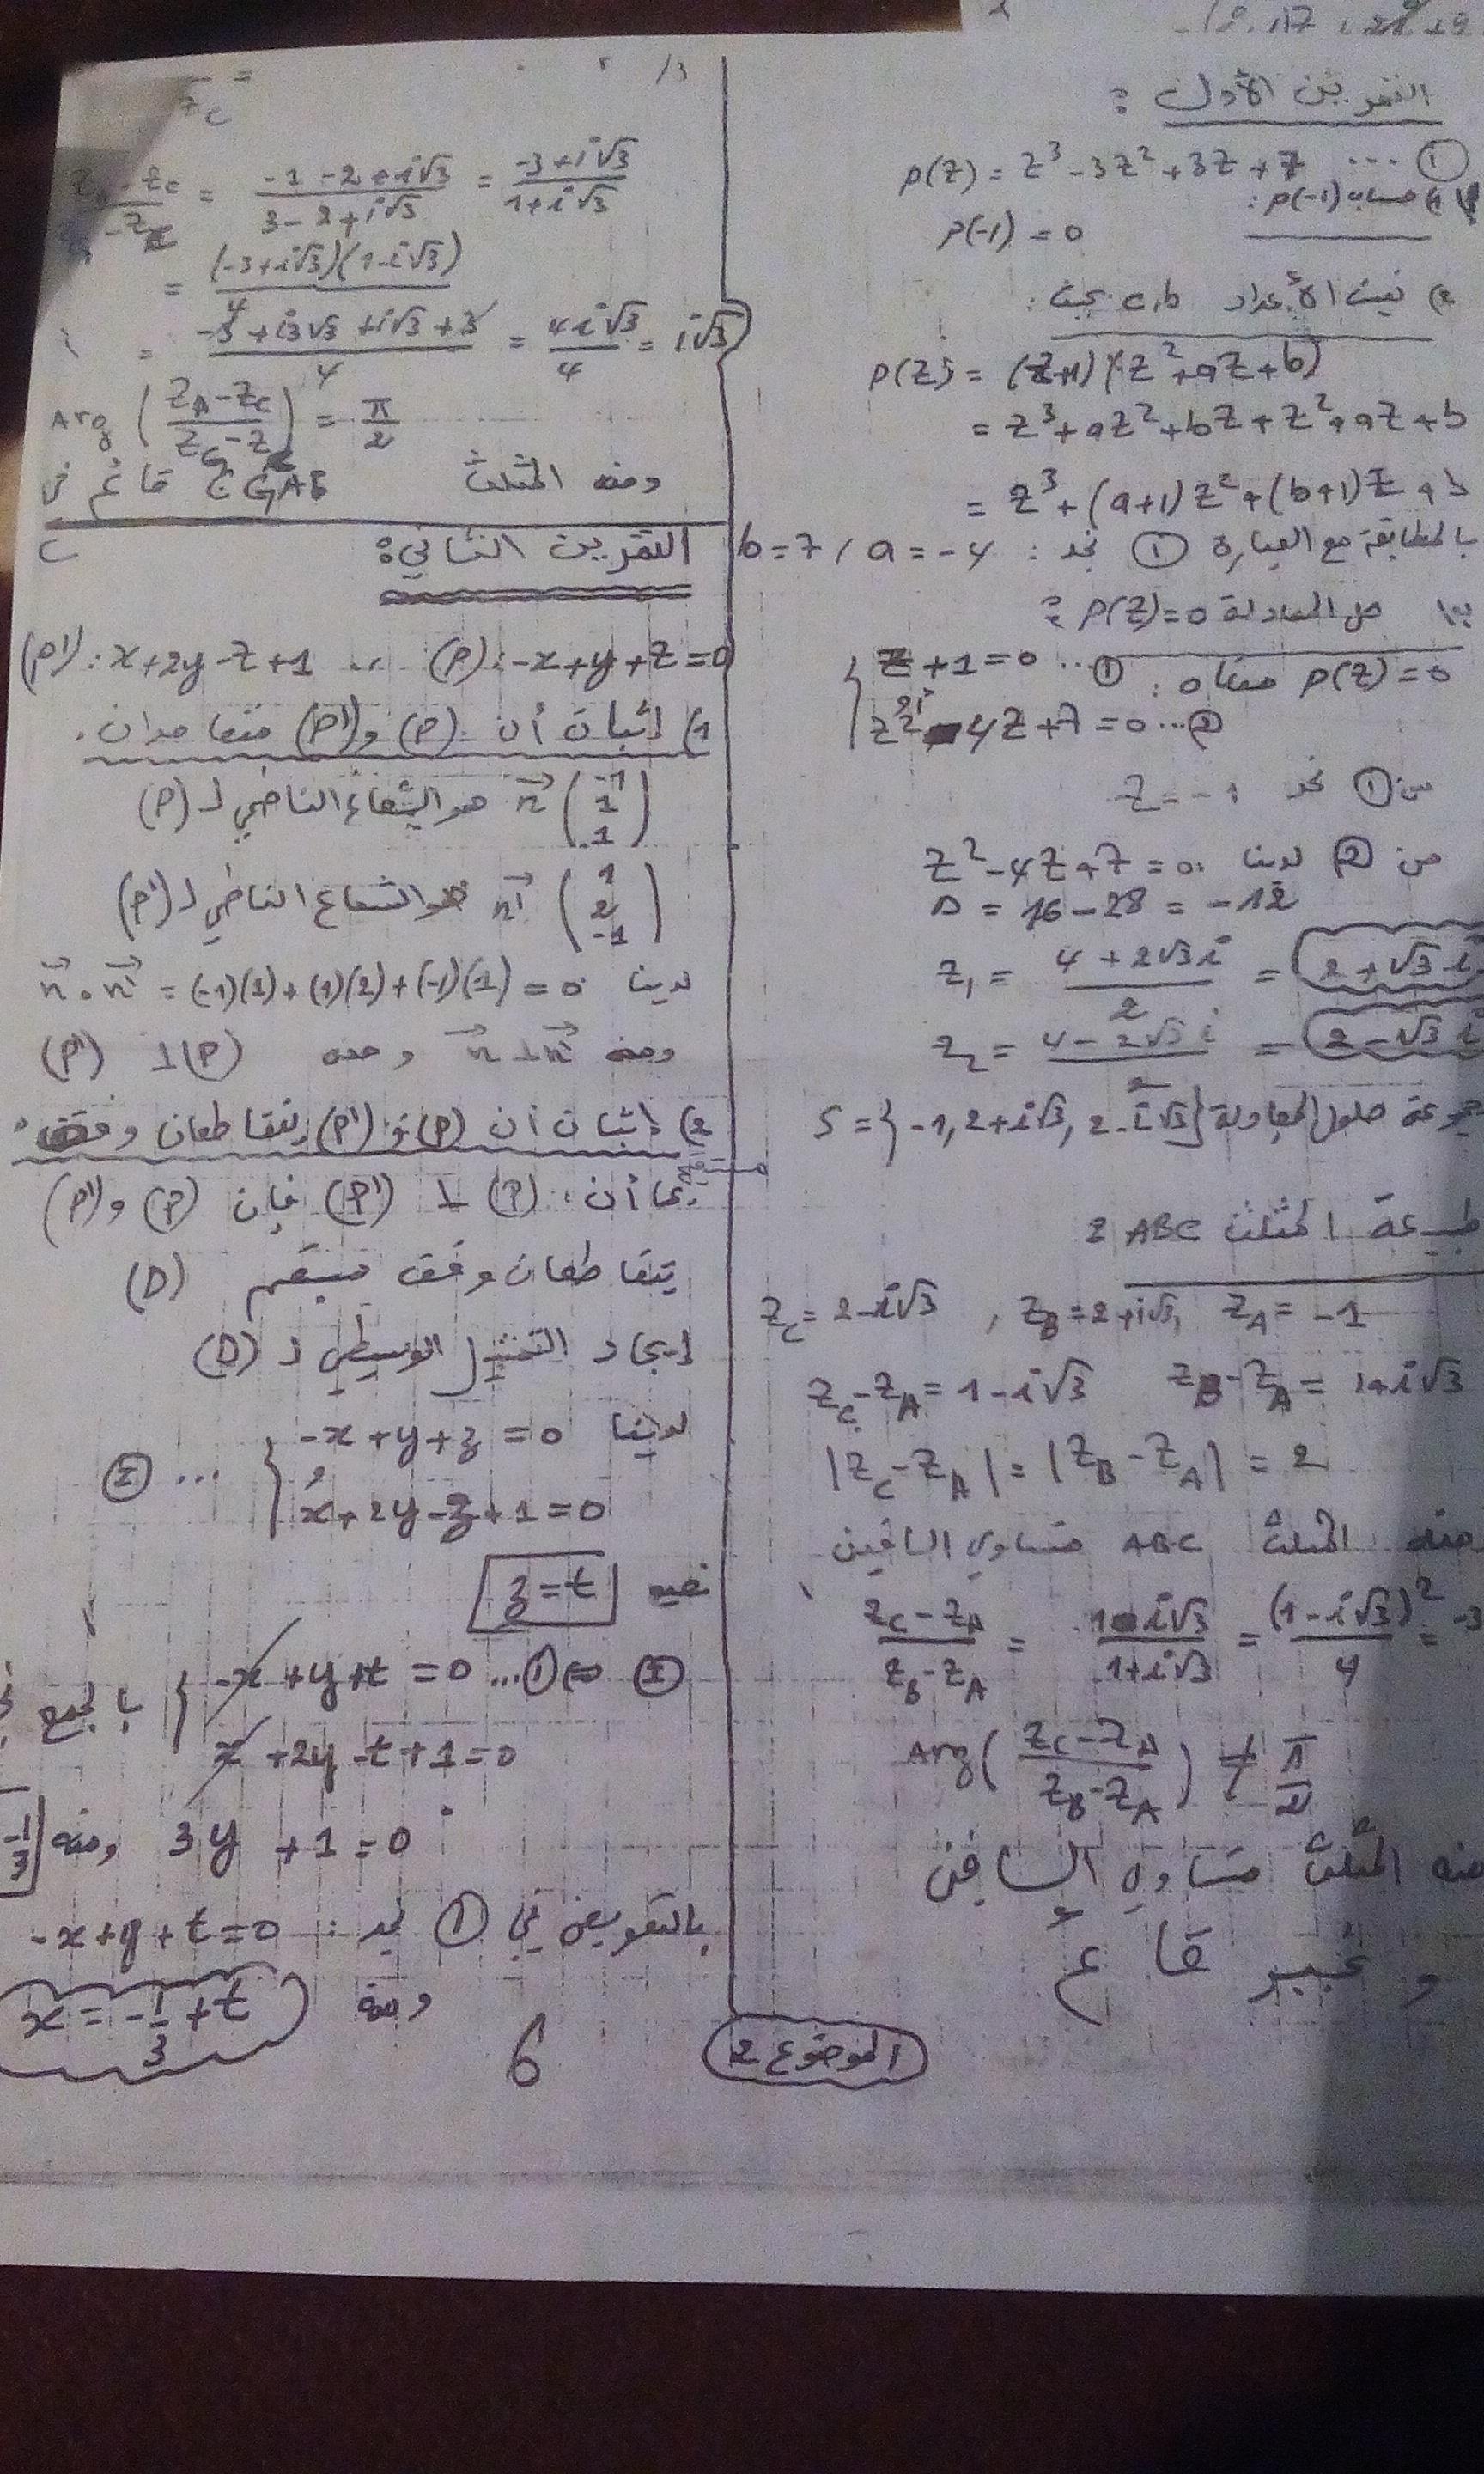 التمرين الأول :
p(z) = z³ - 3z² + 3z + 7 ... ①
حساب p(-1) :
p(-1) = 0
p(z) = (z+1)(z² + az + b)
= z³ + az² + bz + z² + az + b
= z³ + (a+1)z² + (b+1)z + b
بالمطابقة مع العبارة ① نجد : b = 7 / a = -4
حل المعادلة p(z) = 0 :
p(z) = 0 معناه :
z + 1 = 0 ... ①
أو
z² - 4z + 7 = 0 ... ②
من ① نجد z = -1
من ② لدينا z² - 4z + 7 = 0
Δ = 16 - 28 = -12
z₁ = (4 + 2√3 i)/2 = 2 + √3 i
z₂ = (4 - 2√3 i)/2 = 2 - √3 i
مجموعة حلول المعادلة S = {-1, 2+i√3, 2-i√3}
طبيعة المثلث ABC
z_C = 2 - i√3 , z_B = 2 + i√3, z_A = -1
z_C - z_A = 1 - i√3 z_B - z_A = 1 + i√3
|z_C - z_A| = |z_B - z_A| = 2
ومنه المثلث ABC متساوي الساقين
(z_C - z_A)/(z_B - z_A) = (1 - i√3)/(1 + i√3) = (1 - i√3)²/4 =
Arg((z_C - z_A)/(z_B - z_A)) ≠ π/2
ومنه المثلث متساوي الساقين
و غير قائم
= (-1 - 2 + i√3)/(3 - 2 + i√3) = (-3 + i√3)/(1 + i√3)
= (-3 + i√3)(1 - i√3)/4
= (-3 + i3√3 + i√3 + 3)/4 = 4i√3/4 = i√3
= π/2
ومنه المثلث قائم في
C
التمرين الثاني :
(p') : x + 2y - z + 1 .. (p) : -x + y + z = 0
1) إثبات أن (p) و (p') متعامدان .
n⃗ (-1 1 1) هو الشعاع الناظمي لـ (p)
n'⃗ (1 2 -1) هو الشعاع الناظمي لـ (p')
لدينا n⃗ . n'⃗ = (-1)(1) + (1)(2) + (-1)(1) = 0
ومنه n⃗ ⊥ n'⃗ ومنه (p) ⊥ (p')
2) إثبات أن (p) و (p') يتقاطعان وفق
بما أن : (p) ⊥ (p') فإن (p) و (p')
يتقاطعان وفق مستقيم (D)
إيجاد التمثيل الوسيطي لـ (D)
لدينا -x + y + z = 0
و
x + 2y - z + 1 = 0
نضع z = t
-x + y + t = 0 ... ①
x + 2y - t + 1 = 0
بالجمع
3y + 1 = 0 ومنه -1/3
بالتعويض في ① نجد : -x + y + t = 0
ومنه x = -1/3 + t
6
الموضوع 2